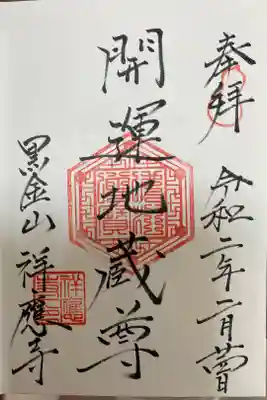 奉拝
令和二年二月蕾
開運地蔵尊
黒金山 祥應寺